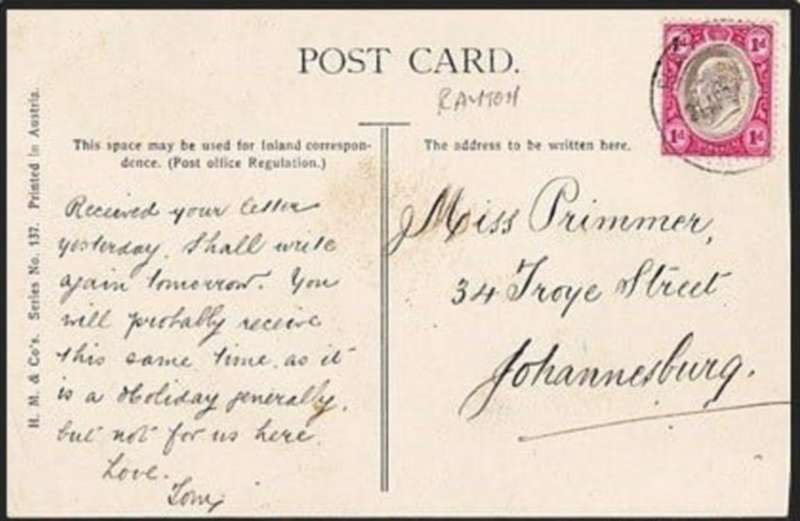 POST CARD.
RAYTON
1d 1d
1d 1d
This space may be used for Inland correspon-
dence. (Post office Regulation.)
The address to be written here.
H. M. & Co's. Series No. 137. Printed in Austria.
Received your letter
yesterday. Shall write
again tomorrow. You
will probably receive
this same time, as it
is a Holiday generally,
but not for us here.
Love.
Tony
Miss Primmer,
34 Troye Street
Johannesburg.